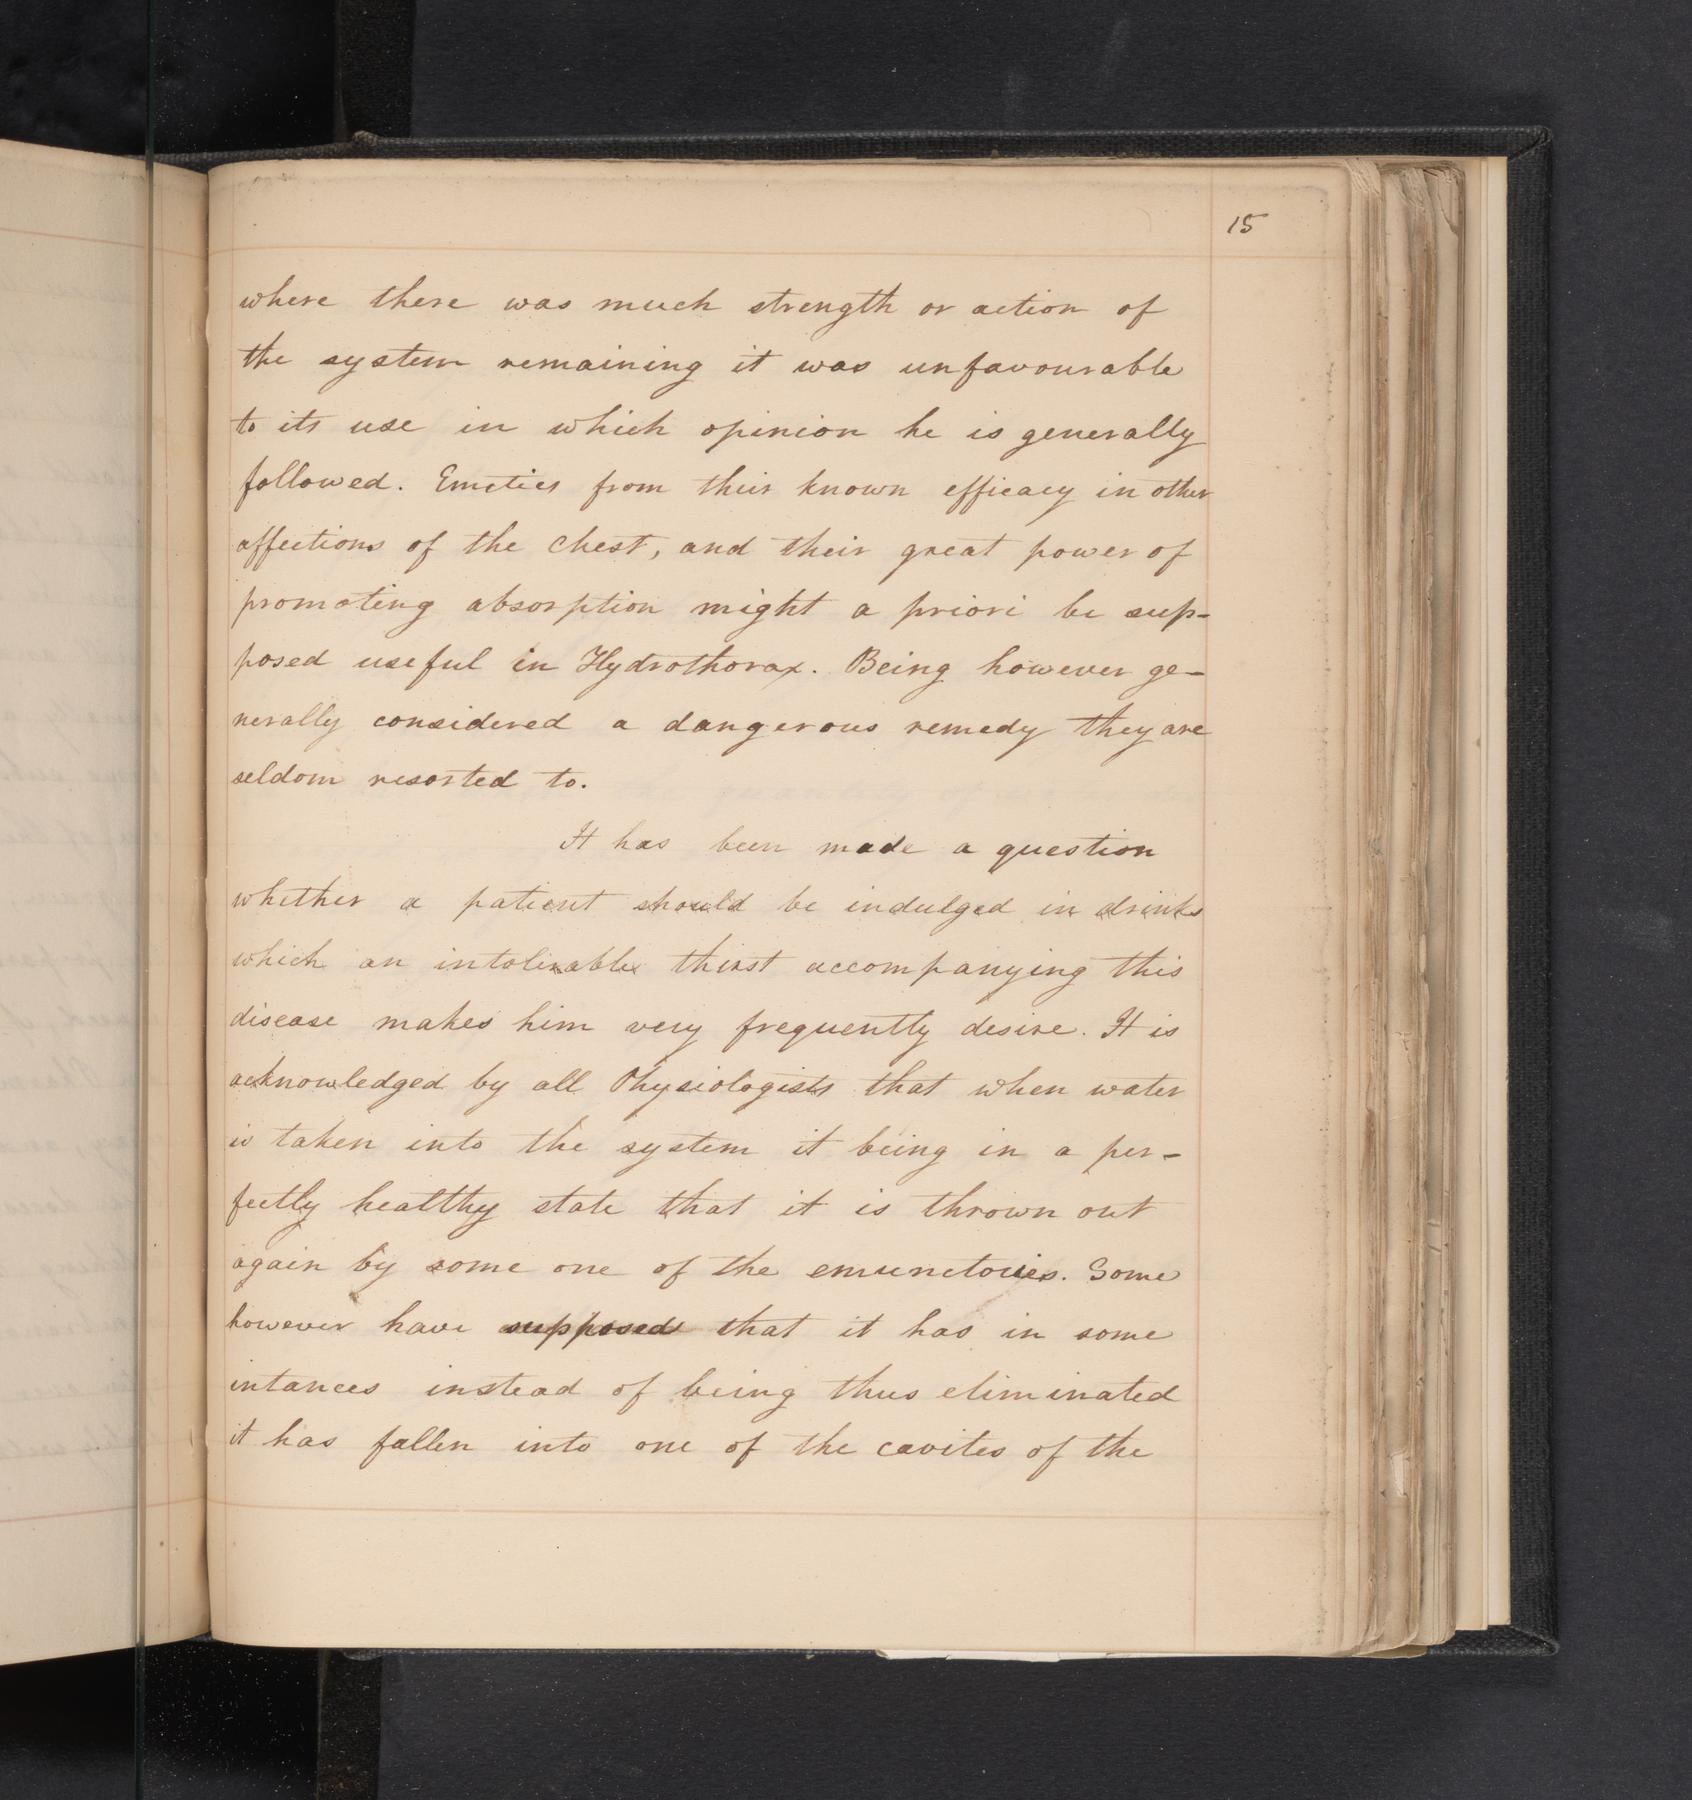 15
where there was much strength or action of
the system remaining it was unfavourable
to its use in which opinion he is generally
followed. Emetics from their known efficacy in other
affections of the chest, and their great power of
promoting absorption might a priori be sup-
posed useful in Hydrothorax. Being however ge-
nerally considered a dangerous remedy they are
seldom resorted to.
It has been made a question
whether a patient should be indulged in drinks
which an intolerable thirst accompanying this
disease makes him very frequently desire. It is
acknowledged by all Physiologists that when water
is taken into the system it being in a per-
fectly healthy state that it is thrown out
again by some one of the emunctories. Some
however have supposed that it has in some
intances instead of being thus eliminated
it has fallen into one of the cavites of the